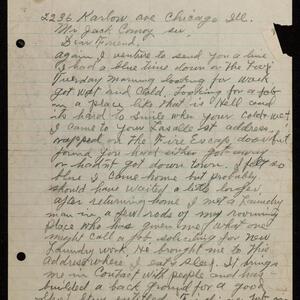 2236 Karlow ave Chicago Ill.
Mr Jack Conroy sr.
Dear Friend.
Again I venture to send you a line
I had a blue time down on the Fire
Tuesday morning looking for work
got wet and Cold, Looking for a job
in a place like that is Hell and
its hard to Smile when your Cold wet
I came to your Lasalle st address
rapped on The Fire Escape door but
found you had either got away
or hadn't got down town. I felt so
blue I came home but probably
should have waited a little longer,
after returning home I met a Laundry
man in, a few rods of my rooming
place who has given me what one
might call a job soliciting for New
Laundry work. He brought me to This
address where I eat & Sleep. It brings
me in Contact with people and has
builded a back ground for a good